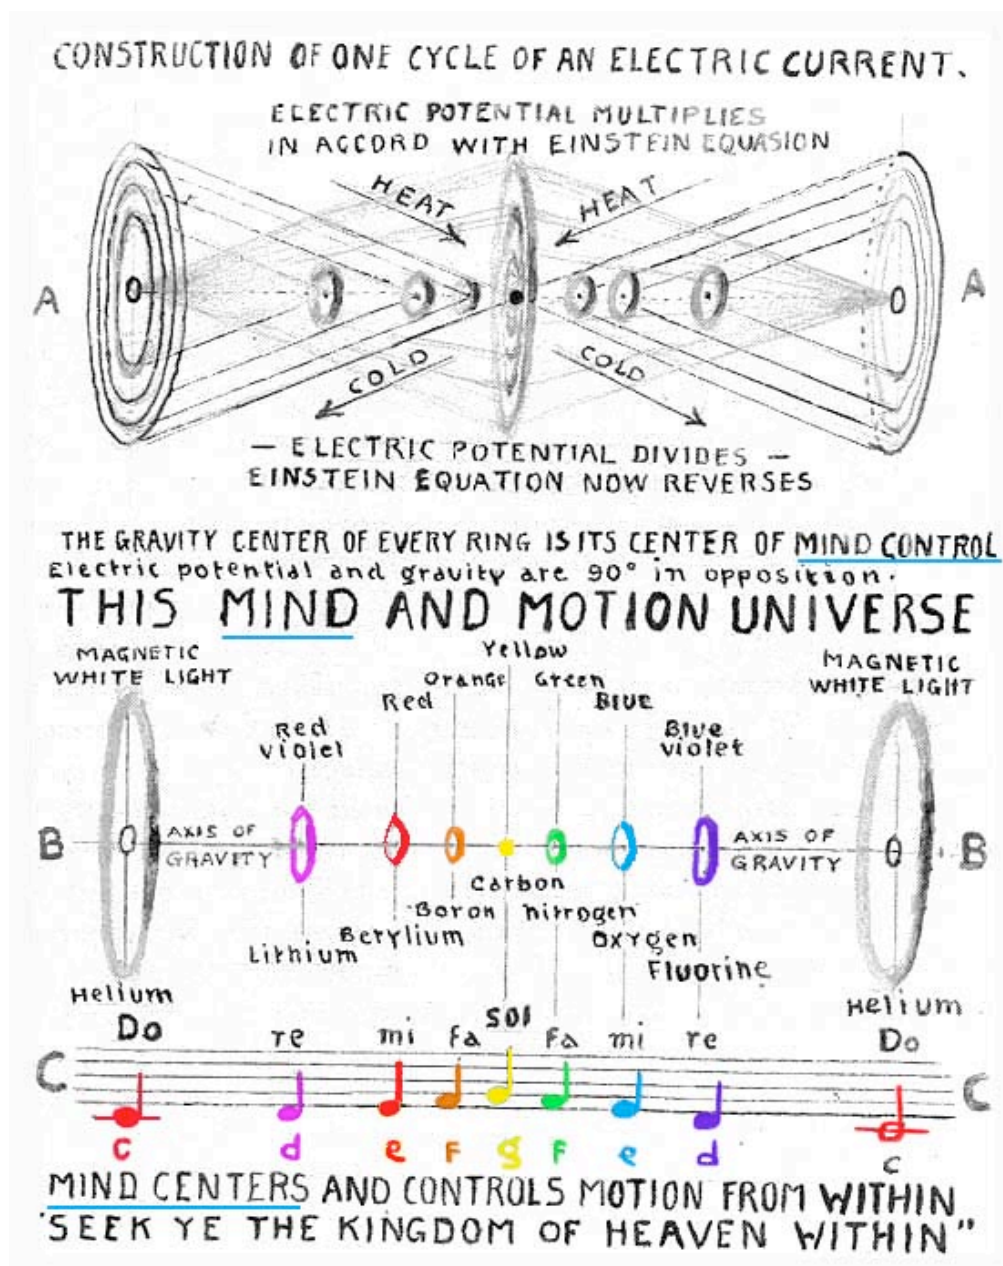 CONSTRUCTION OF ONE CYCLE OF AN ELECTRIC CURRENT.
ELECTRIC POTENTIAL MULTIPLIES
IN ACCORD WITH EINSTEIN EQUASION
HEAT HEAT
A A
COLD COLD
— ELECTRIC POTENTIAL DIVIDES —
EINSTEIN EQUATION NOW REVERSES
THE GRAVITY CENTER OF EVERY RING IS ITS CENTER OF MIND CONTROL
Electric potential and gravity are 90° in opposition.
THIS MIND AND MOTION UNIVERSE
MAGNETIC
WHITE LIGHT
Yellow
MAGNETIC
WHITE LIGHT
Orange Green
Red Blue
Red
violet
Blue
violet
B AXIS OF
GRAVITY
AXIS OF
GRAVITY B
Carbon
Boron nitrogen
Berylium Oxygen
Lithium Fluorine
Helium Helium
Do re mi fa sol fa mi re Do
C C
c d e F g F e d c
MIND CENTERS AND CONTROLS MOTION FROM WITHIN
"SEEK YE THE KINGDOM OF HEAVEN WITHIN"